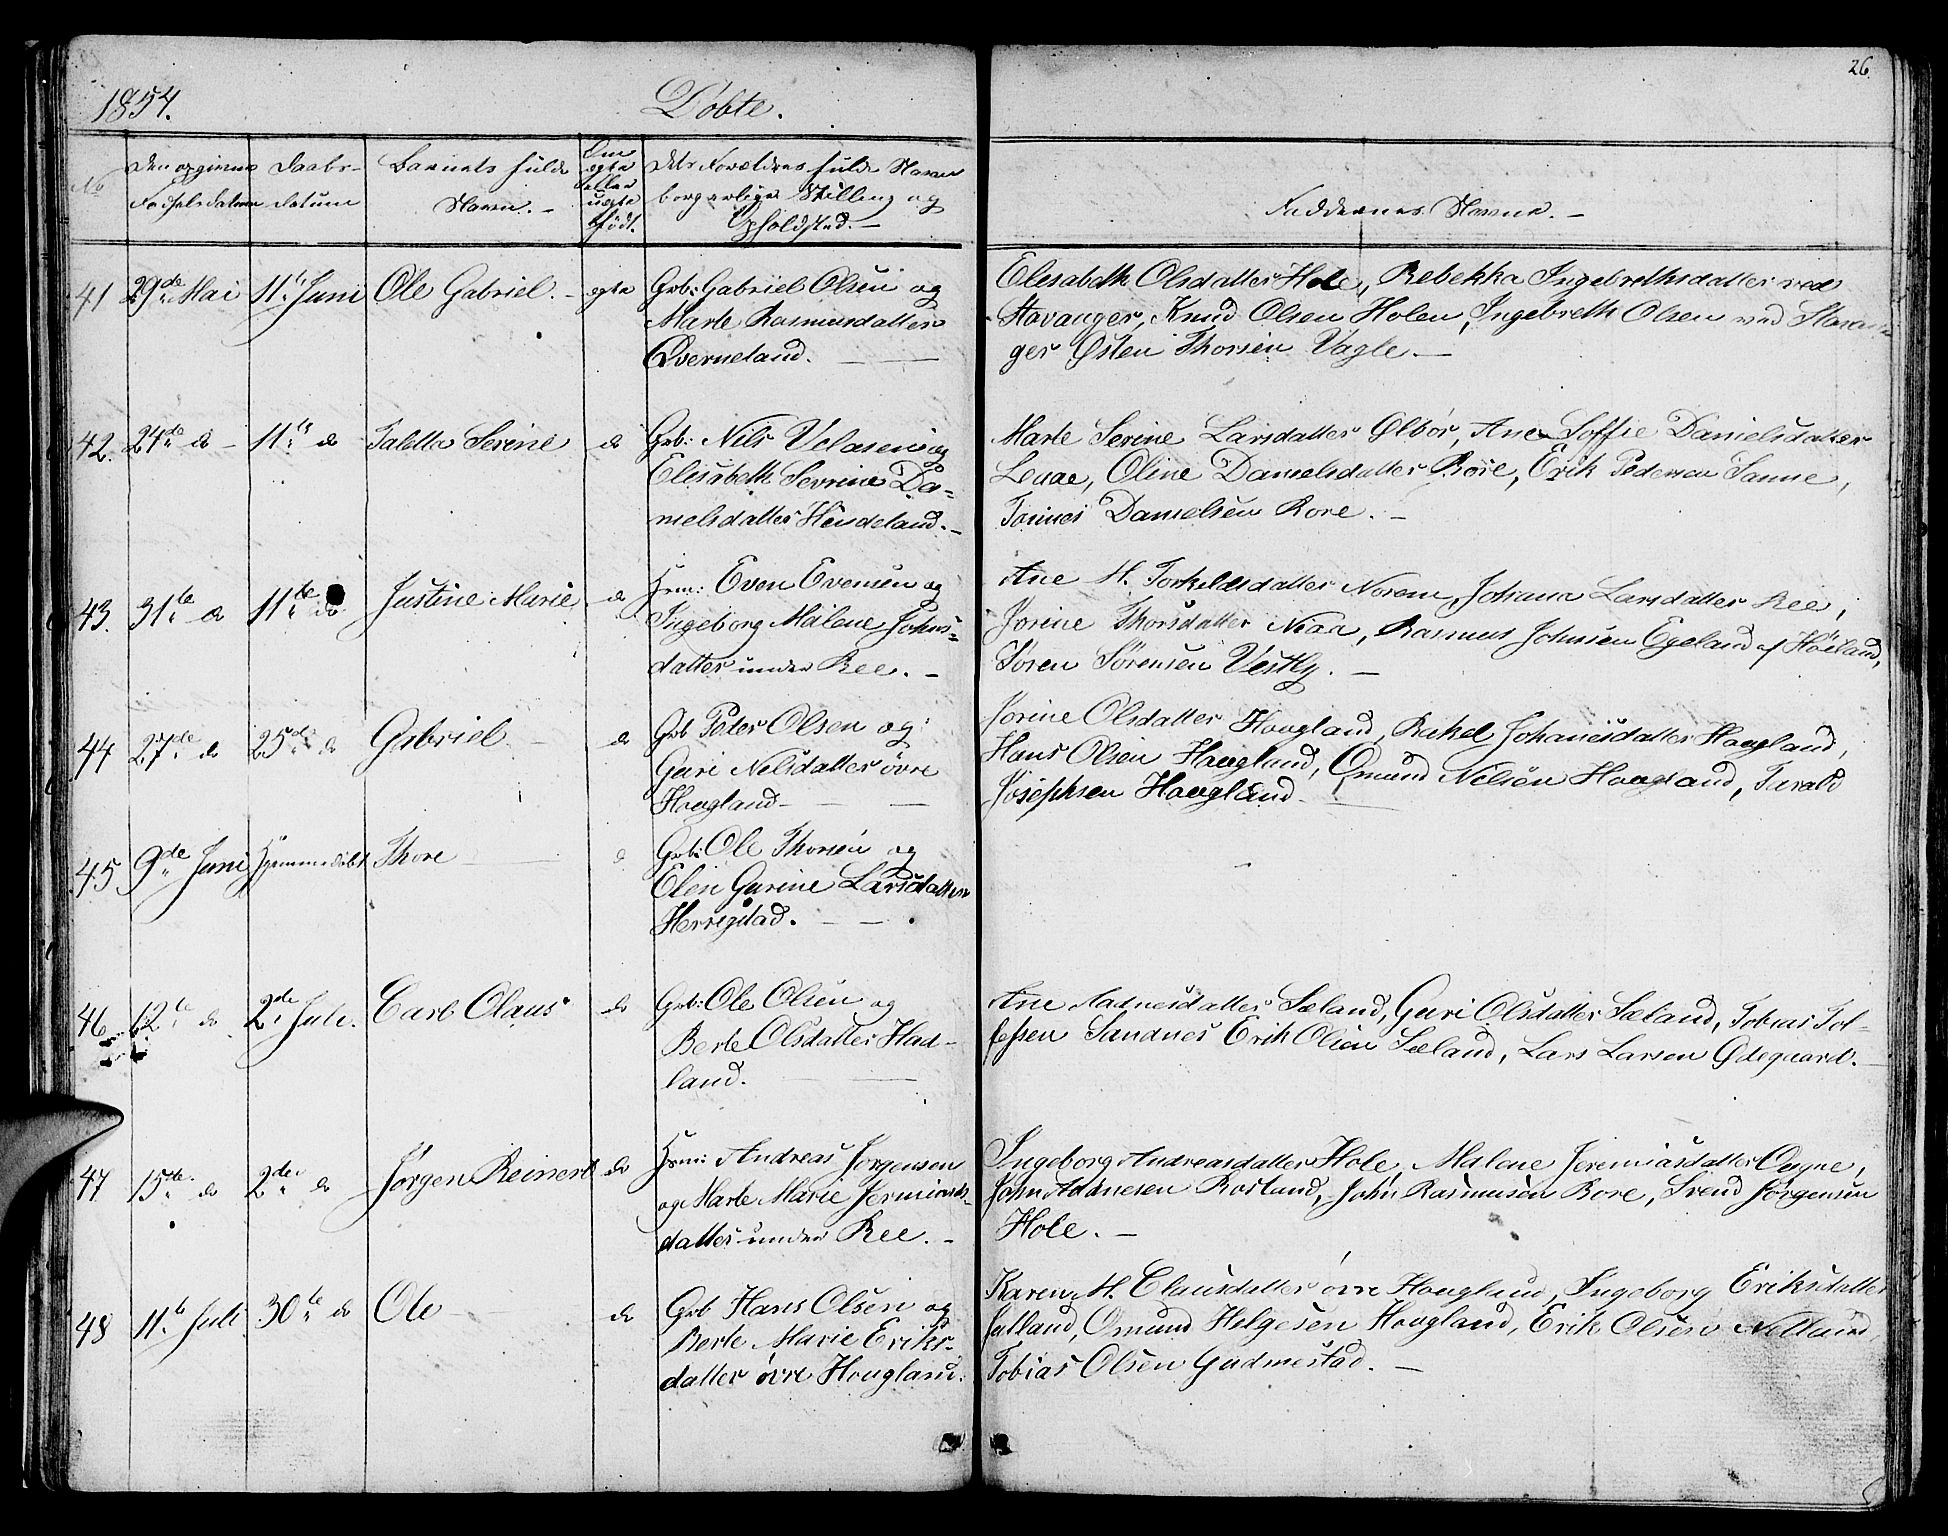 26
1854. Døbte.
No
Den opgivne
Fødselsdatum
Daabs-
datum
Barnets fulde
Navn. -
Om
egte
eller
uegte
født.
Dets Forældres fulde Navn
borgerlige Stilling og
Opholdsted. -
Faddernes Navne. -
41 29de Mai 11te Juni Ole Gabriel. - egte
Grb: Gabriel Olsen og
Marte Rasmusdatter
Qverneland. -
Elesabeth Olsdatter Hole, Rebekka Ingebrethsdatter ved
Stavanger, Knud Olsen Holen, Ingebreth Olsen ved Stavan-
ger Østen Thorsen Vagle. -
42. 24de do - 11te do Taletta Serine do
Grb: Nils Velasen og
Elesabeth Sevrine Da-
nielsdatter Hendeland. -
Marte Serine Larsdatter Ølbør, Ane Soffie Danielsdatter
Leuae, Oline Danielsdatter Rore, Erik Pedersen Sanne,
Tønnes Danielsen Rore. -
43. 31te do 11te do Justine Marie do
Hsm: Even Evensen og
Ingeborg Malene Johns-
datter under Ree. -
Ane M. Torkildsdatter Norem, Johana Larsdatter Ree,
Jorine Thorsdatter Niaa, Rasmus Johnsen Egeland af Höiland,
Søren Sørensen Vestly. -
44 27de do 25de do Gabriel - do
Grb Peter Olsen og
Guri Nilsdatter øvre
Haagland -
Jorine Olsdatter Haagland, Rakel Johanesdatter Haagland,
Hans Olsen Haagland, Omund Nelsen Haagland, Tarald
Josephsen Haagland -
45 9de Juni Hjemmedøbt Thore - do
Grb: Ole Thorsen og
Elen Gurine Larsdatter
Herrigstad. -
46 12te do 2de Juli. Carl Olaus do
Grb: Ole Olsen og
Berte Olsdatter Had-
land. -
Ane Aadnesdatter Sæland, Guri Olsdatter Sæland, Tobias Tol-
lefsen Sandnes Erik Olsen Sæland, Lars Larsen Ødegaard. -
47 15te do 2de do Jørgen Reinert do
Hsm: Andreas Jørgensen
og Marte Marie Jermiads-
datter under Ree. -
Ingeborg Andreasdatter Hole, Malene Jeremiasdatter Ougne,
John Aadnesen Rosland, John Rasmusen Bore, Svend Jørgensen
Hole. -
48 11te Juli 30te do Ole - do
Grb Hans Olsen og
Berte Marie Eriks-
datter øvre Haugland.
Karen M. Clausdatter øvre Haugland, Ingeborg Eriksdatter
Julland, Omund Helgesen Haagland, Erik Olsen Netland,
Tobias Olsen Gudmestad. -